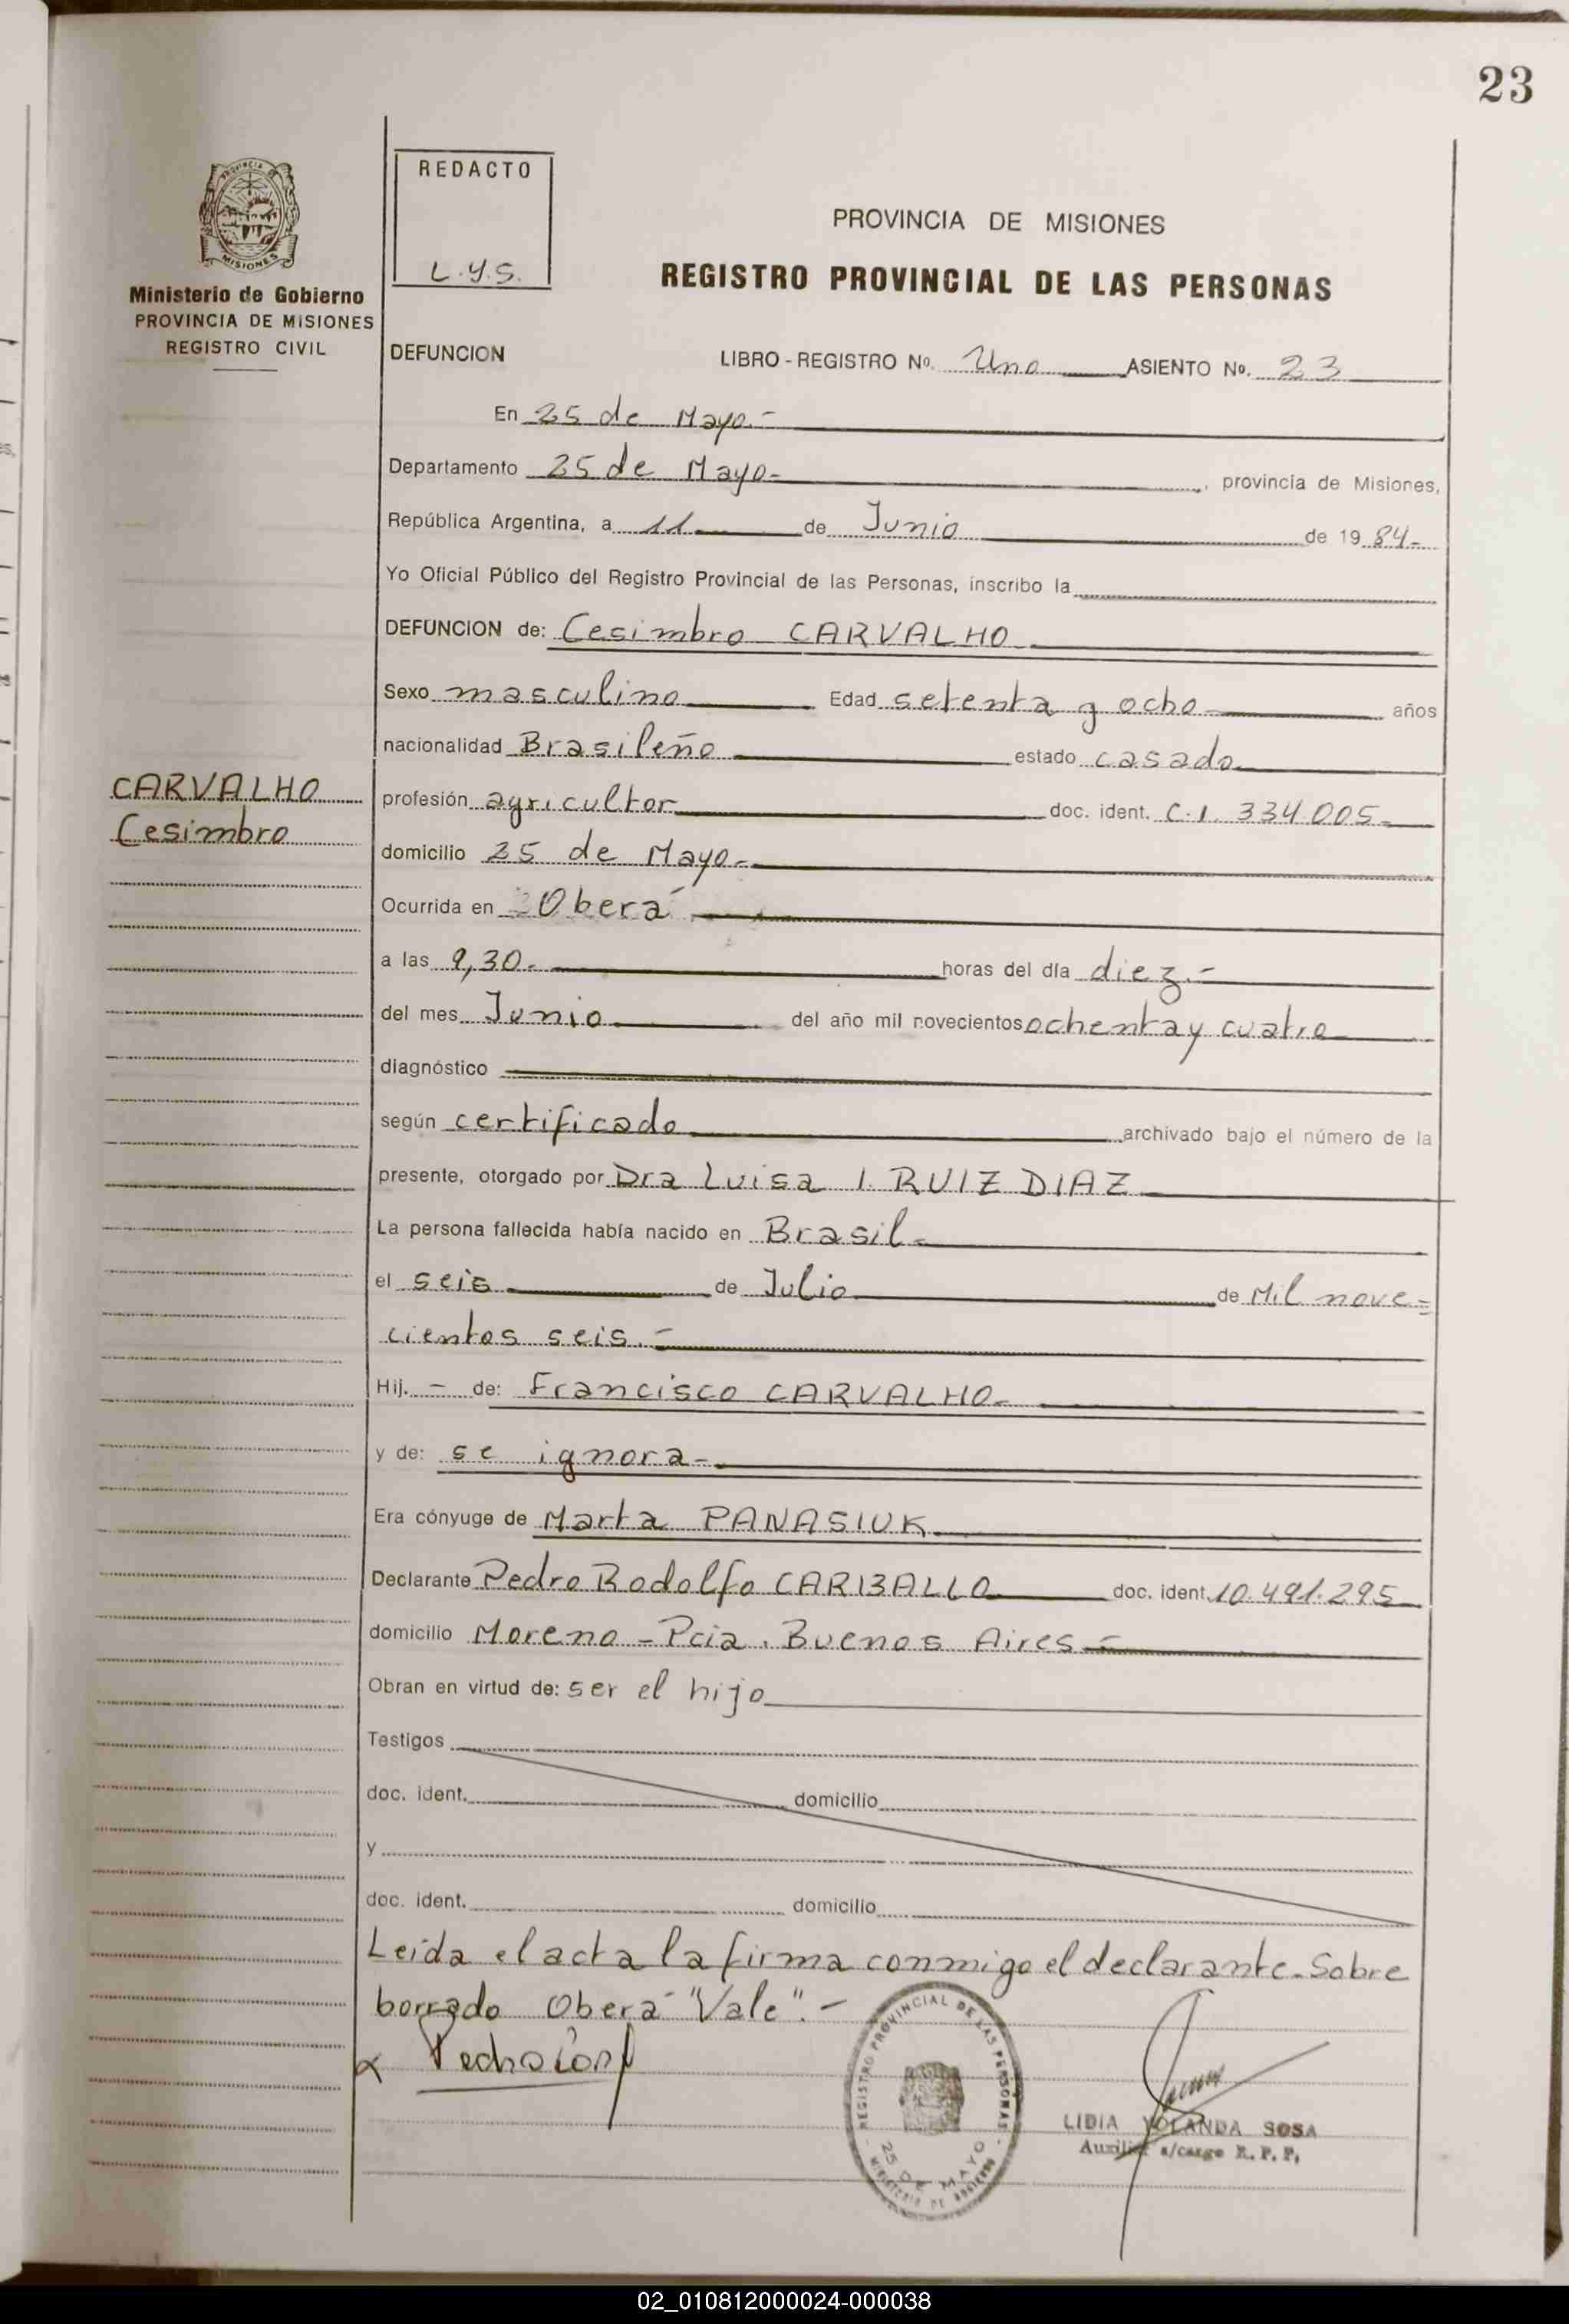 23
PROVINCIA DE
MISIONES
Ministerio de Gobierno
PROVINCIA DE MISIONES
REGISTRO CIVIL
REDACTO
L.Y.S.
PROVINCIA DE MISIONES
REGISTRO PROVINCIAL DE LAS PERSONAS
DEFUNCION LIBRO - REGISTRO Nº. Uno ASIENTO Nº. 23
En 25 de Mayo.-
Departamento 25 de Mayo- , provincia de Misiones,
República Argentina, a 11 de Junio de 19 84-
Yo Oficial Público del Registro Provincial de las Personas, inscribo la
DEFUNCION de: Cesimbro CARVALHO
Sexo masculino Edad setenta y ocho años
nacionalidad Brasileño estado casado
CARVALHO
Cesimbro
profesión agricultor doc. ident. C.I. 334.005-
domicilio 25 de Mayo-
Ocurrida en Oberá
a las 9,30- horas del día diez.-
del mes Junio del año mil novecientos ochenta y cuatro
diagnóstico
según certificado archivado bajo el número de la
presente, otorgado por Dra Luisa I. RUIZ DIAZ
La persona fallecida había nacido en Brasil-
el seis de Julio de Mil nove=
cientos seis.-
Hij. - de: Francisco CARVALHO-
y de: se ignora-
Era cónyuge de Marta PANASIUK
Declarante Pedro Rodolfo CARBALLO doc. ident. 10.491.295
domicilio Moreno - Pcia. Buenos Aires -
Obran en virtud de: ser el hijo
Testigos
doc. ident. domicilio
y
doc. ident. domicilio
Leída el acta la firma conmigo el declarante. Sobre
borrado Oberá "Vale".-
REGISTRO PROVINCIAL DE LAS PERSONAS
25 DE MAYO
MINISTERIO DE GOBIERNO
LIDIA YOLANDA SOSA
Auxiliar a/cargo R. P. P.
02_010812000024-000038